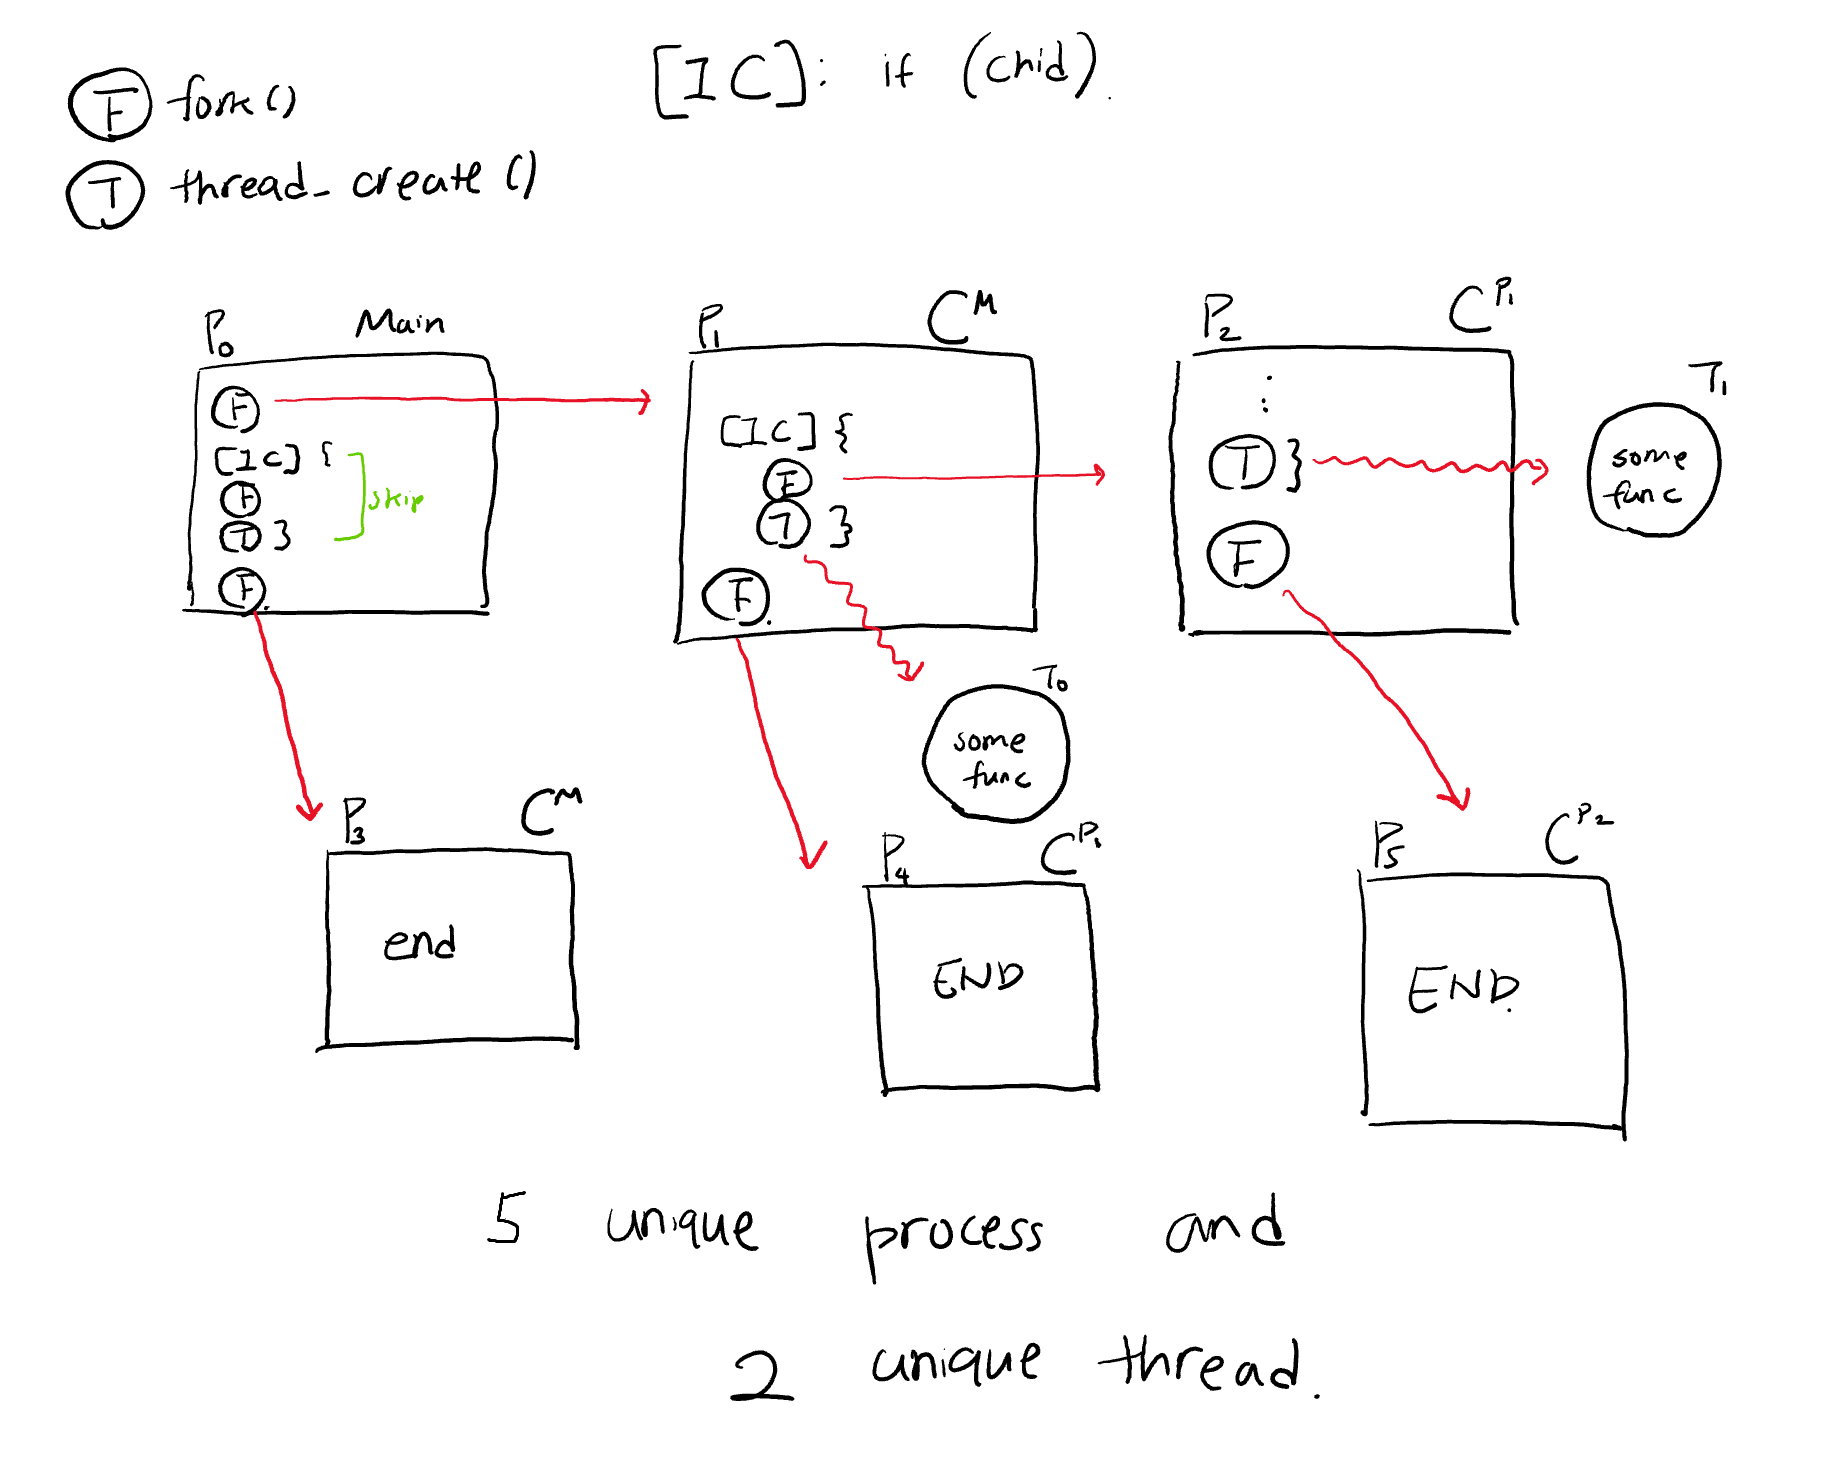 F fork()
[IC]: if (child).
T thread_create()
P0 Main
F
[IC] {
F
T }
skip
F.
P1 C^M
[IC] {
F
T }
F.
P2 C^P1
:
T }
F
T1
some
func
T0
some
func
P3 C^M
end
P4 C^P1
END
P5 C^P2
END.
5 unique process and
2 unique thread.